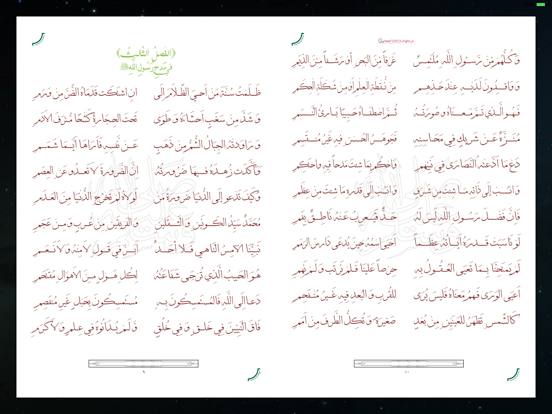 (الفصل الثالث)
في مدح رسول الله ﷺ
ظَلَمتُ سُنَّةَ مَن أحيَى الظَّلامَ إلَى أنِ اشتَكَت قَدَمَاهُ الضُّرَّ مِن وَرَمِ
وشَدَّ مِن سَغَبٍ أحشَاءَهُ وَطَوَى تَحتَ الحِجَارَةِ كَشحًا مُترَفَ الأدَمِ
وَرَاوَدَتهُ الجِبَالُ الشُّمُّ مِن ذَهَبٍ عَن نَفسِهِ فَأرَاهَا أيَّمَا شَمَمِ
وأكَّدَت زُهدَهُ فِيهَا ضَرُورَتُهُ إنَّ الضَّرُورَةَ لا تَعدُو عَلَى العِصَمِ
وَكَيفَ تَدعُو إلَى الدُّنيَا ضَرُورَةُ مَن لَولاهُ لَم تَخرُجِ الدُّنيَا مِنَ العَدَمِ
مُحَمَّدٌ سَيِّدُ الكَونَينِ والثَّقَلَينِ والفَرِيقَينِ مِن عُربٍ ومِن عَجَمِ
نَبِيُّنَا الآمِرُ النَّاهِي فَلا أحَدٌ أبَرَّ فِي قَولِ لا مِنهُ وَلا نَعَمِ
هُوَ الحَبِيبُ الَّذِي تُرجَى شَفَاعَتُهُ لِكُلِّ هَولٍ مِنَ الأهوَالِ مُقتَحَمِ
دَعَا إلَى اللَّهِ فَالمُستَمسِكُونَ بِهِ مُستَمسِكُونَ بِحَبلٍ غَيرِ مُنفَصِمِ
فَاقَ النَّبِيِّينَ فِي خَلقٍ وَفِي خُلُقٍ وَلَم يُدَانُوهُ فِي عِلمٍ وَلا كَرَمِ
٩
وَكُلُّهُم مِن رَسُولِ اللَّهِ مُلتَمِسٌ غَرفًا مِنَ البَحرِ أو رَشفًا مِنَ الدِّيَمِ
وَوَاقِفُونَ لَدَيهِ عِندَ حَدِّهِم مِن نُقطَةِ العِلمِ أو مِن شَكلَةِ الحِكَمِ
فَهوَ الَّذِي تَمَّ مَعنَاهُ وصُورَتُهُ ثُمَّ اصطَفَاهُ حَبِيبًا بَارِئُ النَّسَمِ
مُنَزَّهٌ عَن شَرِيكٍ فِي مَحَاسِنِهِ فَجَوهَرُ الحُسنِ فِيهِ غَيرُ مُنقَسِمِ
دَع مَا ادَّعَتهُ النَّصَارَى فِي نَبِيِّهِمِ وَاحكُم بِمَا شِئتَ مَدحًا فِيهِ وَاحتَكِمِ
وَانسُب إلَى ذَاتِهِ مَا شِئتَ مِن شَرَفٍ وَانسُب إلَى قَدرِهِ مَا شِئتَ مِن عِظَمِ
فَإنَّ فَضلَ رَسُولِ اللَّهِ لَيسَ لَهُ حَدٌّ فَيُعرِبَ عَنهُ نَاطِقٌ بِفَمِ
لَو نَاسَبَت قَدرَهُ آيَاتُهُ عِظَمًا أحيَا اسمُهُ حِينَ يُدعَى دَارِسَ الرِّمَمِ
لَم يَمتَحِنَّا بِمَا تَعيَى العُقُولُ بِهِ حِرصًا عَلَينَا فَلَم نَرتَب وَلَم نَهِمِ
أعيَى الوَرَى فَهمُ مَعنَاهُ فَلَيسَ يُرَى لِلقُربِ وَالبُعدِ فِيهِ غَيرُ مُنفَحِمِ
كَالشَّمسِ تَظهَرُ لِلعَينَينِ مِن بُعُدٍ صَغِيرَةً وَتُكِلُّ الطَّرفَ مِن أمَمِ
١٠